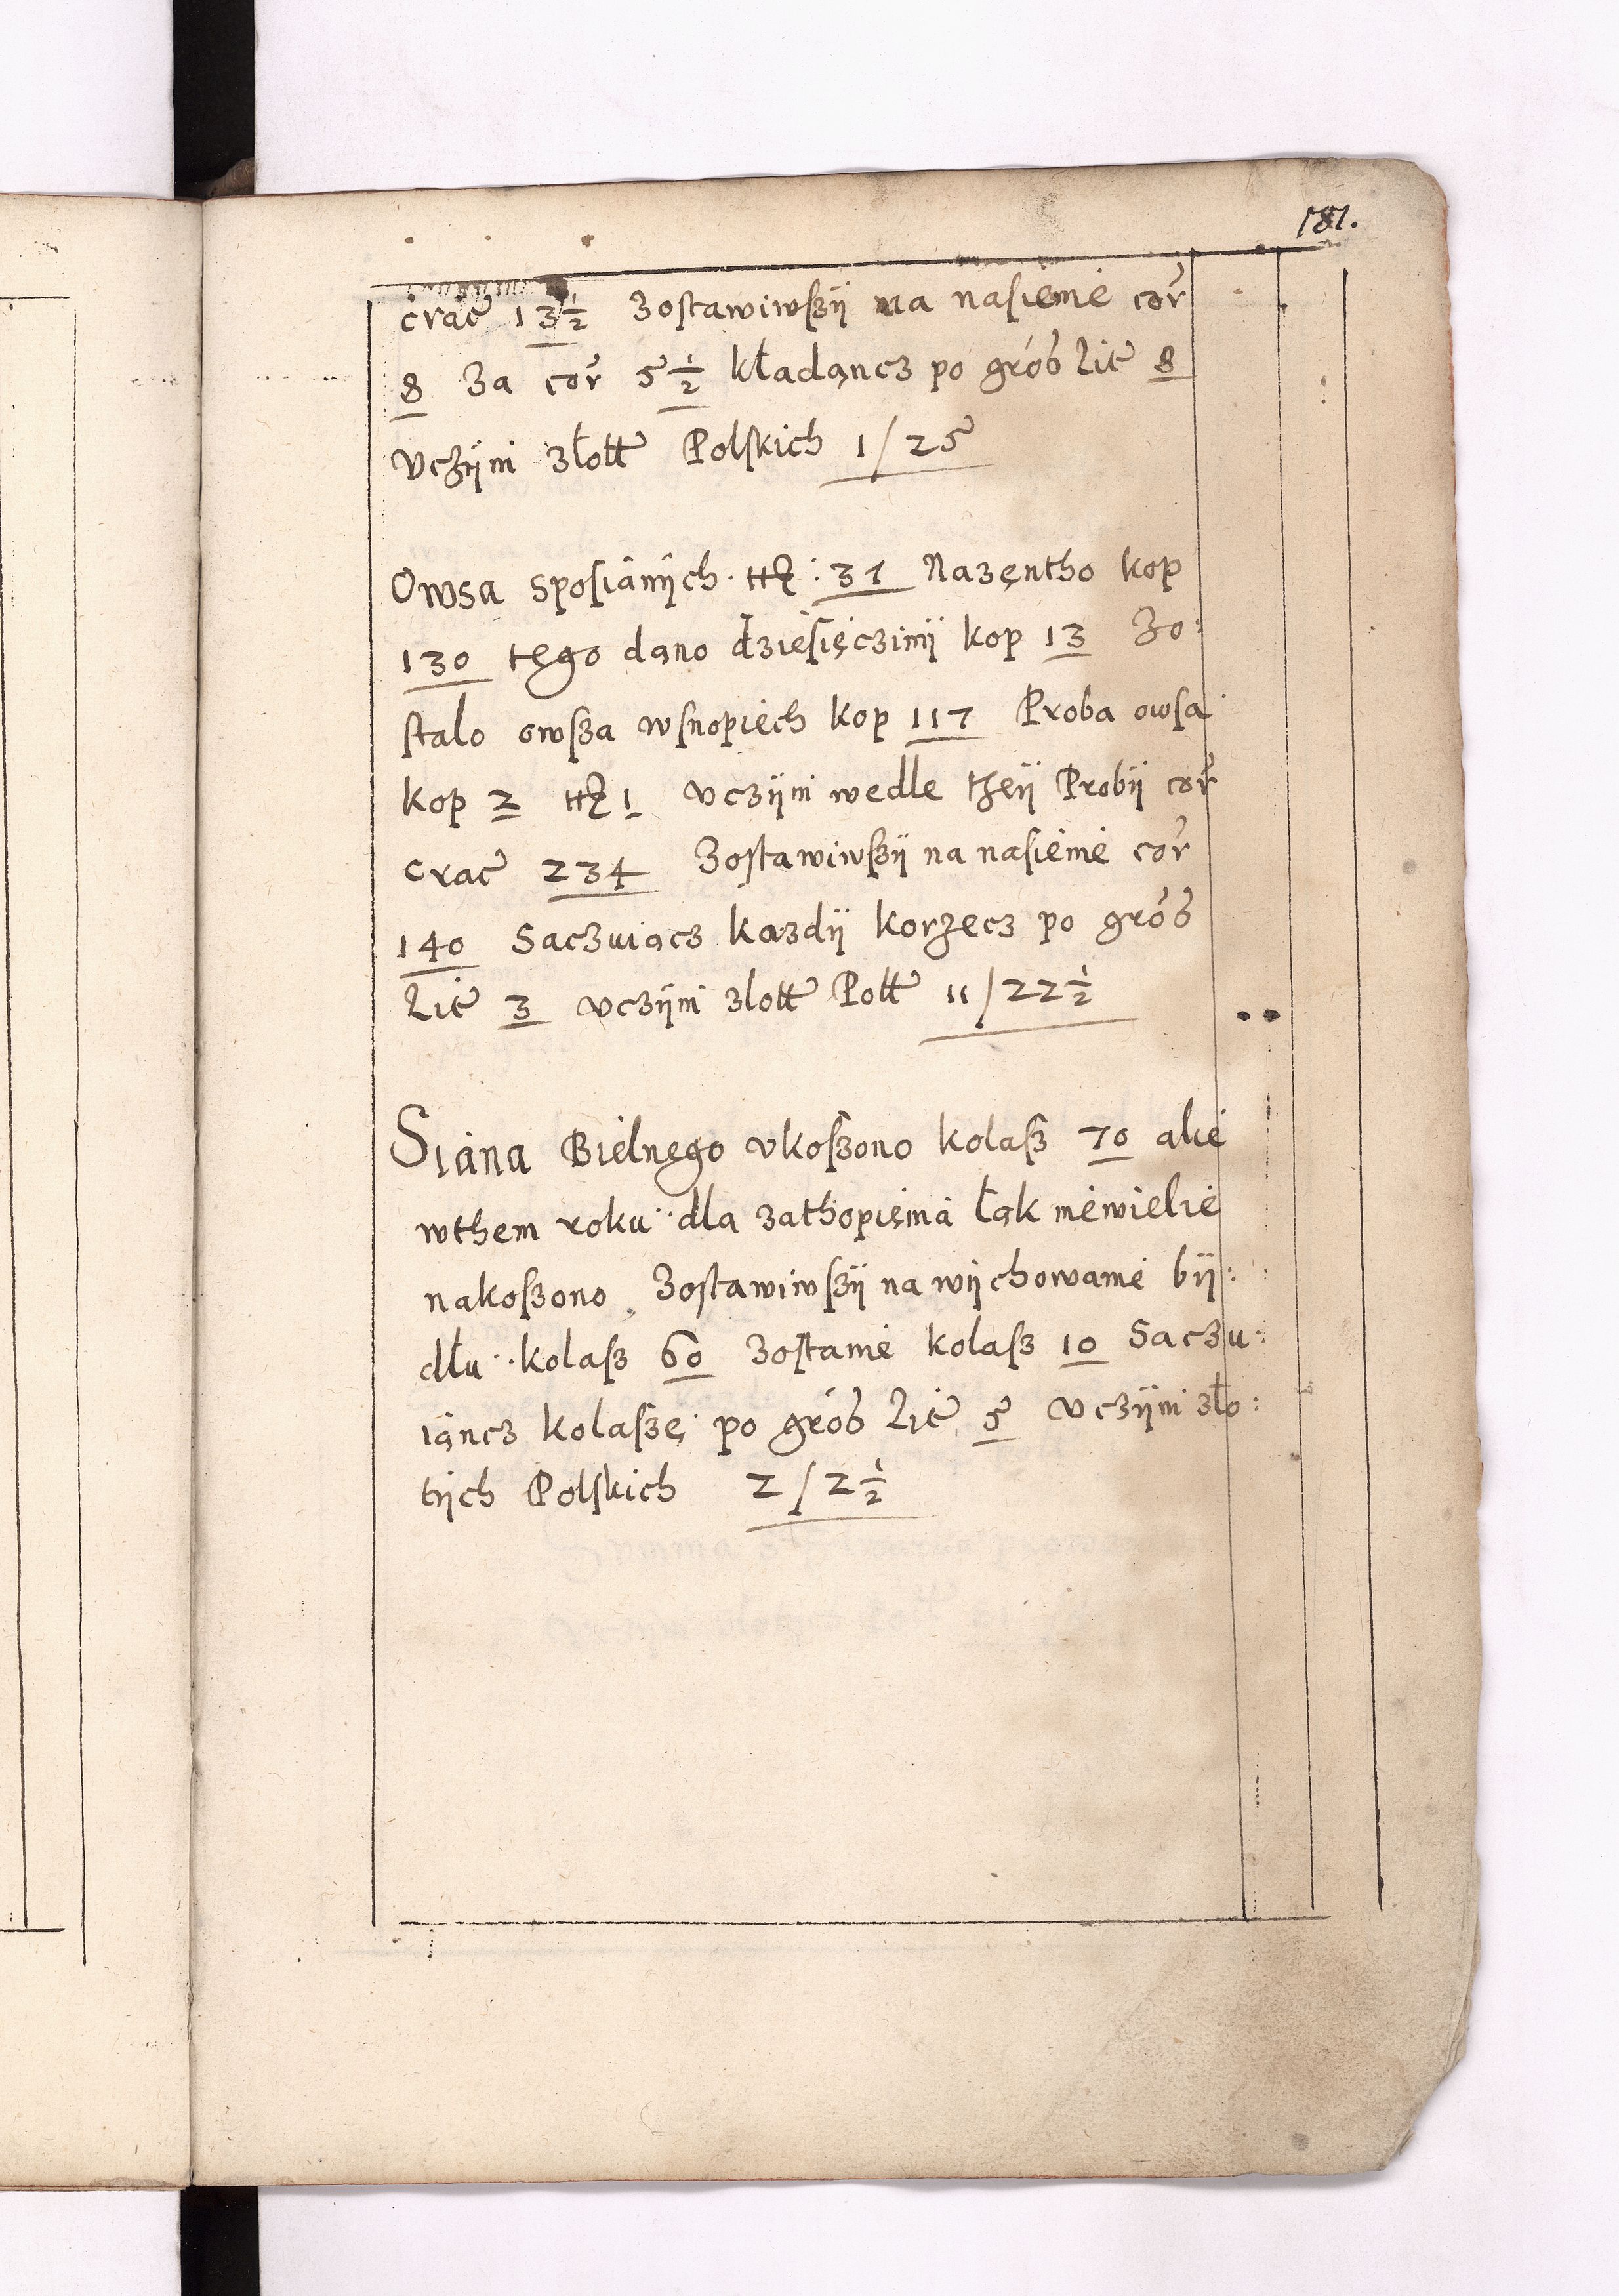 181.
crac 13 1/2 Zostawiwszÿ na nasienié cor
8 za cor 5 1/2 kładąncz po grós lit 8
vczÿni złott Polskich 1/25
Owsa sposiánÿch 31 Nazęntho kop
130 tego dano dziesięczinÿ kop 13 Zo:
stalo owsza wsnopiech kop 117 Proba owsa
kop 2 1 vczÿni wedle theÿ Probÿ cor
crac 234 Zostawiwszÿ na nasienié cor
140 Saczuiącz kazdÿ korzecz po grós
Lit 3 vczÿni zlott Pott 11/22 1/2
Siana Bielnego vkoszono kolasz 70 alie
wthem roku dla zathopięnia łąk niewielié
nakoszono Zostawiwszÿ na wÿchowanié bÿ:
dłu kolasz 60 Zostanié kolasz 10 Saczu:
iąncz kolaszę po grós Lit 5 vczÿni zło:
tÿch Polskich 2/2 1/2